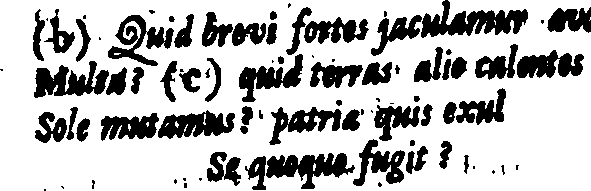 (b) Quid brevi fortes jaculamur
Multa? (c) quid terras alio calentes
Sole mutamus? patria quis exul
Se quoque fugit?